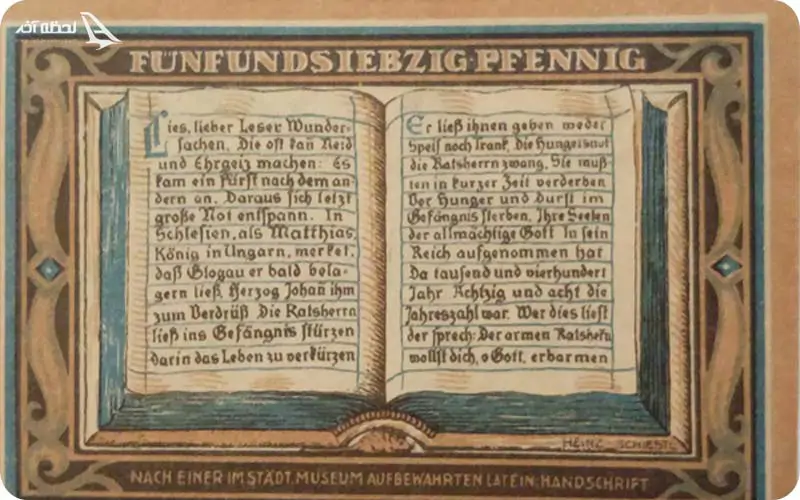 لحظه آخر
FÜNFUNDSIEBZIG·PFENNIG
Lies, lieber Leser Wunder-
sachen, Die oft kan Neid
und Ehrgeiz machen: Es
kam ein Fürst nach dem an-
dern an, Daraus sich letzt
große Not entspann. In
Schlesien, als Matthias,
König in Ungarn, merket,
daß Glogau er bald bela-
gern ließ, Herzog Johañ ihm
zum Verdrüß Die Ratsherrn
ließ ins Gefängnis stürzen
darin das Leben zu verkürzen
Er ließ ihnen geben weder
Speis noch Trank, Die Hungersnot
die Ratsherrn zwang, Sie muß
ten in kurzer Zeit verderben
Vor Hunger und Durst im
Gefängnis sterben. Ihre Seelen
der allmächtige Gott In sein
Reich aufgenommen hat
Da tausend und vierhundert
Jahr Achtzig und acht die
Jahreszahl war. Wer dies liest
der sprech: Der armen Ratsherrn
wollst dich, o Gott, erbarmen
HEINZ SCHIESTL
NACH EINER IM STÄDT. MUSEUM AUFBEWAHRTEN LATEIN. HANDSCHRIFT